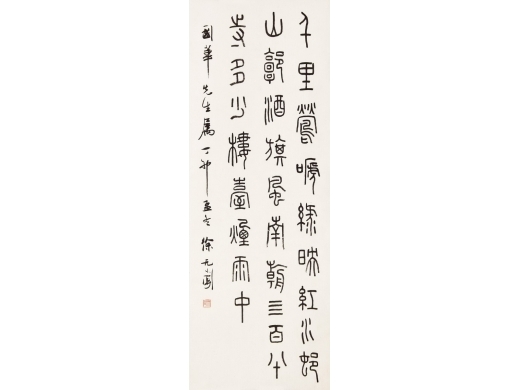 千里鶯嗁綠映紅水邨
山郭酒旗風南朝四百八十
寺多少樓臺煙雨中
國華先生屬丁卯孟冬徐无聞